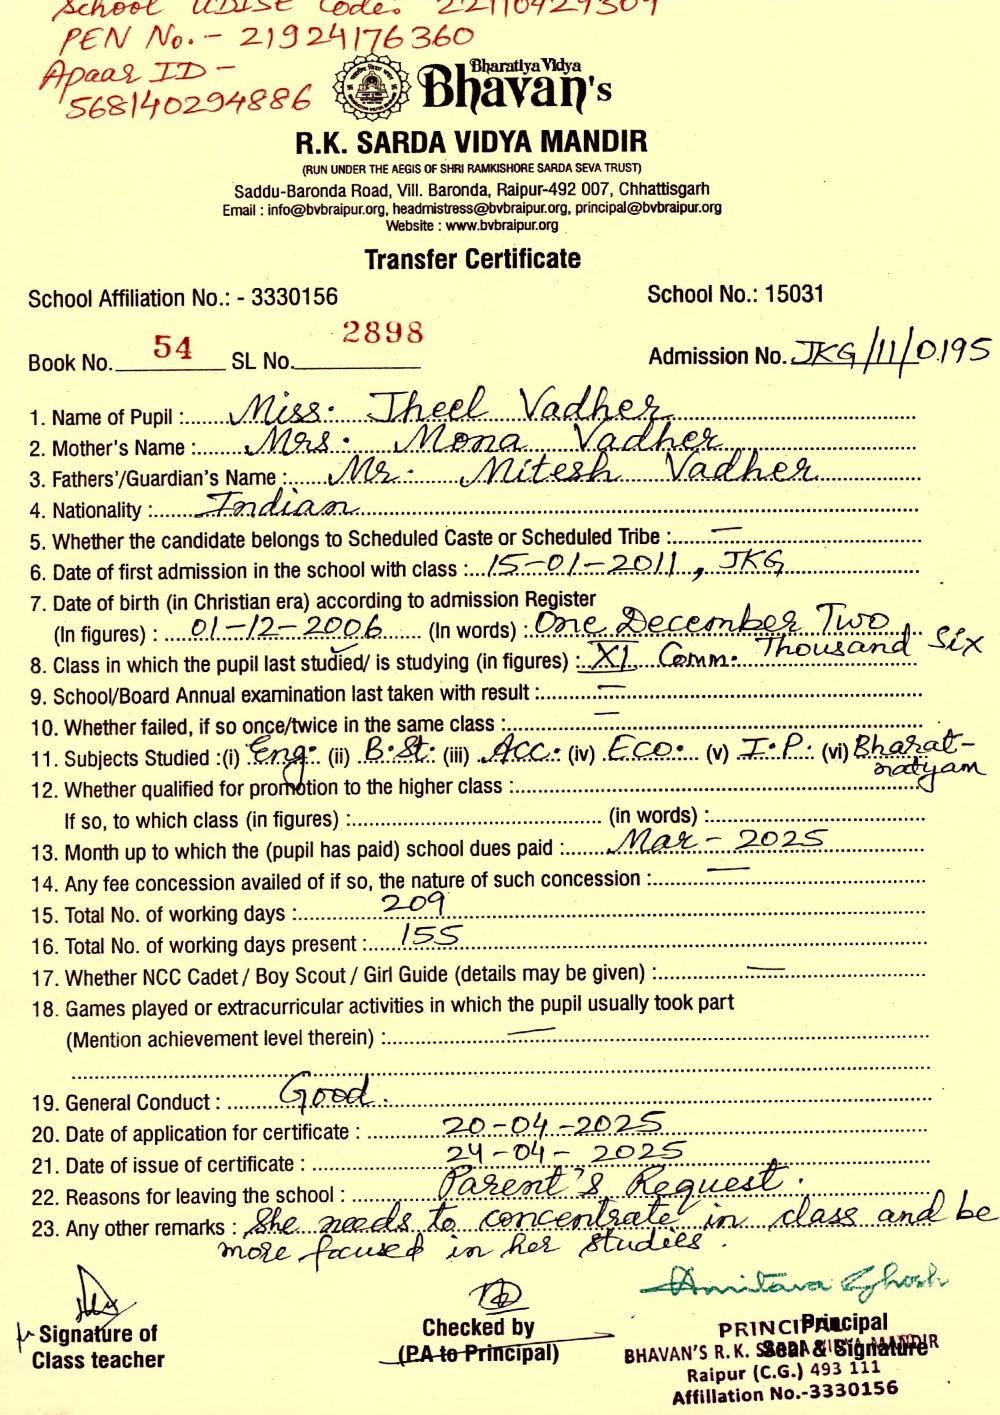 School UDISE Code: 22110429309
PEN No. - 21924176360
Apaar ID -
568140294886
Bharatiya Vidya
Bhavan's
R.K. SARDA VIDYA MANDIR
(RUN UNDER THE AEGIS OF SHRI RAMKISHORE SARDA SEVA TRUST)
Saddu-Baronda Road, Vill. Baronda, Raipur-492 007, Chhattisgarh
Email : info@bvbraipur.org, headmistress@bvbraipur.org, principal@bvbraipur.org
Website : www.bvbraipur.org
Transfer Certificate
School Affiliation No.: - 3330156 School No.: 15031
Book No. 54 SL No. 2898 Admission No. JKG/11/0195
1. Name of Pupil : Miss. Jheel Vadher
2. Mother's Name : Mrs. Mona Vadher
3. Fathers'/Guardian's Name : Mr. Mitesh Vadher
4. Nationality : Indian
5. Whether the candidate belongs to Scheduled Caste or Scheduled Tribe : —
6. Date of first admission in the school with class : 15-01-2011, JKG
7. Date of birth (in Christian era) according to admission Register
(In figures) : 01-12-2006 (In words) : One December Two Thousand Six
8. Class in which the pupil last studied/ is studying (in figures) : XI Comm.
9. School/Board Annual examination last taken with result : —
10. Whether failed, if so once/twice in the same class : —
11. Subjects Studied :(i) Eng. (ii) B.St. (iii) Acc. (iv) Eco. (v) I.P. (vi) Bharat-
natyam
12. Whether qualified for promotion to the higher class :
If so, to which class (in figures) : (in words) :
13. Month up to which the (pupil has paid) school dues paid : Mar - 2025
14. Any fee concession availed of if so, the nature of such concession : —
15. Total No. of working days : 209
16. Total No. of working days present : 155
17. Whether NCC Cadet / Boy Scout / Girl Guide (details may be given) : —
18. Games played or extracurricular activities in which the pupil usually took part
(Mention achievement level therein) : —
19. General Conduct : Good.
20. Date of application for certificate : 20-04-2025
21. Date of issue of certificate : 24-04-2025
22. Reasons for leaving the school : Parent's Request.
23. Any other remarks : She needs to concentrate in class and be
more focused in her studies.
Amitava Ghosh
Signature of
Class teacher
Checked by
(P.A to Principal)
Principal
Seal & Signature
PRINCIPAL
BHAVAN'S R. K. SARDA VIDYA MANDIR
Raipur (C.G.) 493 111
Affillation No.-3330156